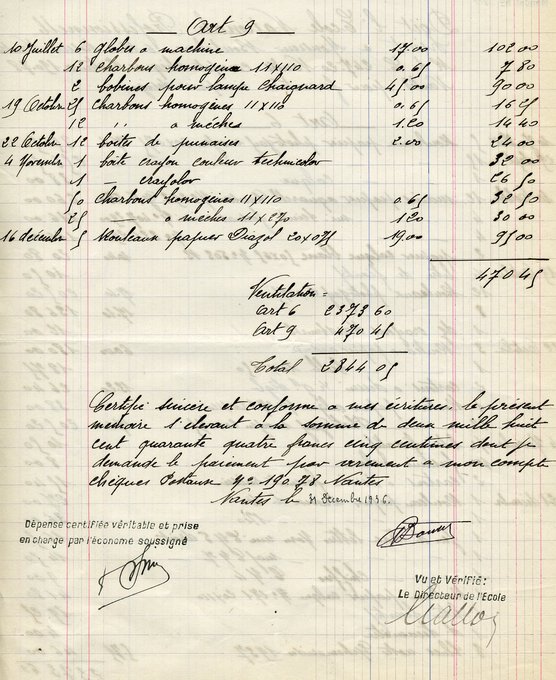 Art 9
10 Juillet 6 globes a machine 17.00 102 00
12 charbons homogène 11 x 110 0.65 7 80
2 bobines pour lampe Chaignard 45.00 90 00
19 Octobre 25 charbons homogènes 11 x 110 0.65 16 25
12 '' a mèches 1.20 14 40
22 Octobre 12 boites de punaises 2.00 24 00
4 Novembre 1 boite crayon couleur technicolor 32 00
1 — crayolor 26 50
50 charbons homogènes 11 x 110 0.65 32 50
25 — a mèches 11 x 270 1 20 30 00
16 décembre 5 Rouleaux papier Diazol 20 x 075 19.00 95 00
470 45
Ventilation =
art 6 2373 60
art 9 470 45
Total 2844 05
Certifié sincère et conforme a mes écritures, le présent
mémoire s'élevant à la somme de deux mille huit
cent quarante quatre francs cinq centimes dont je
demande le paiement par virement a mon compte
chèques Postaux No 190.78 Nantes
Nantes le 31 Decembre 1936.
Dépense certifiée véritable et prise
en charge par l'économe soussigné
Vu et Vérifié:
Le Directeur de l'Ecole